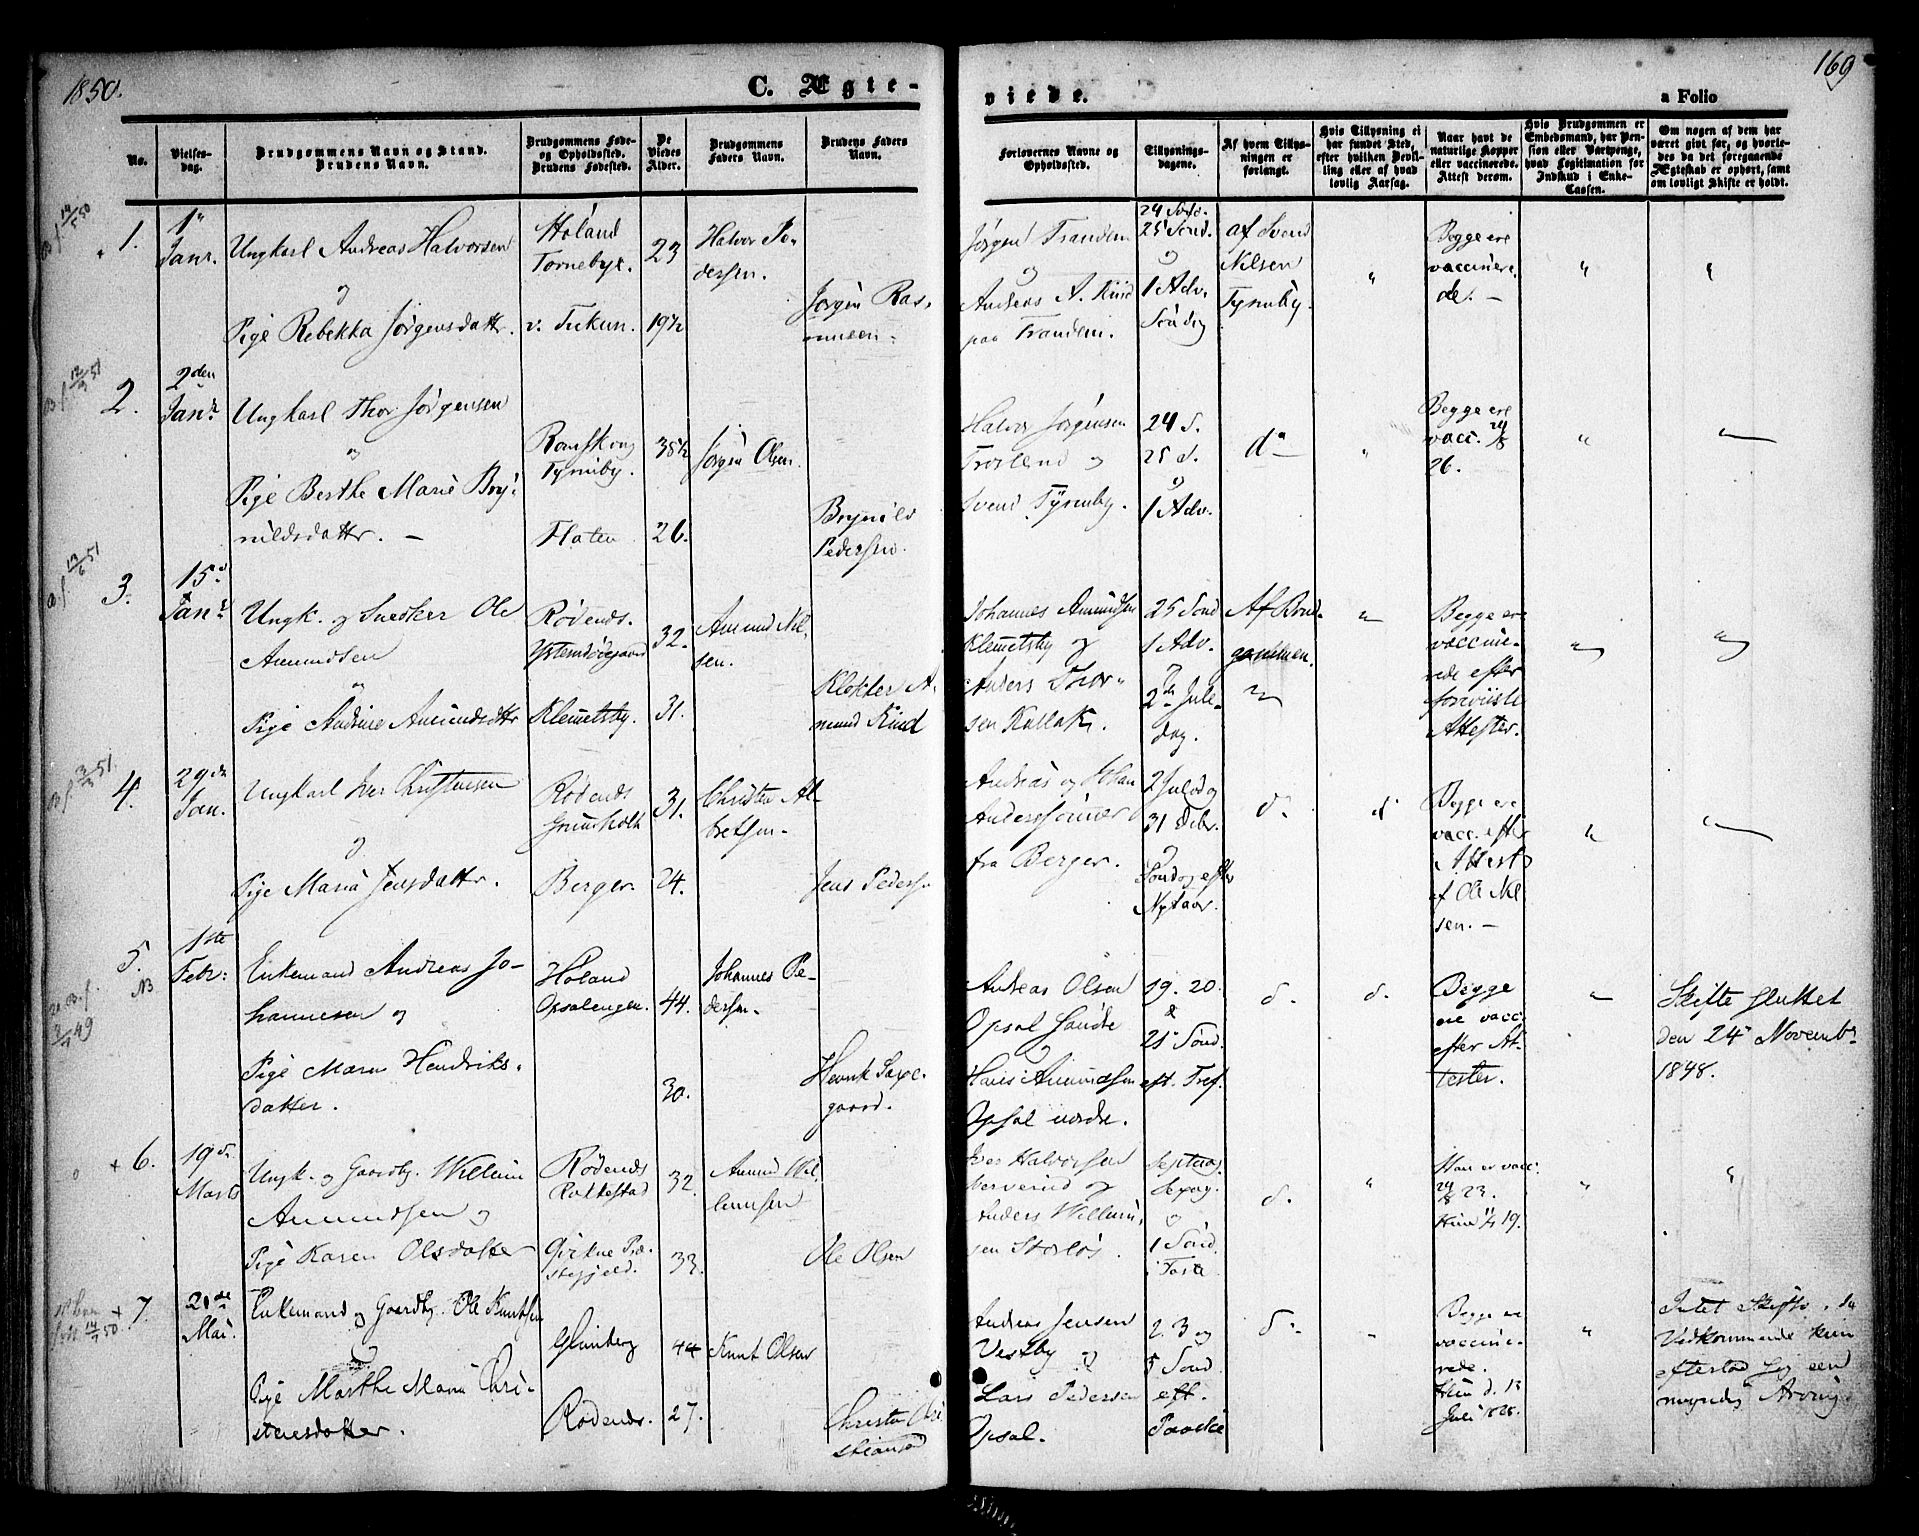 1850.
C. Ægte-
viede.
169
a Folio
No.
Vielses-
dag.
Brudgommens Navn og Stand.
Brudens Navn.
Brudgommens Føde-
og Opholdssted.
Brudens Fødested.
De
Viedes
Alder.
Brudgommens
Faders Navn.
Brudens Faders
Navn.
Forlovernes Navne og
Opholdssted.
Tillysnings-
dagene.
Af hvem Tillys-
ningen er
forlangt.
Hvis Tillysning ei
har fundet Sted,
efter hvilken Bevil-
ling eller af hvad
lovlig Aarsag.
Naar havt de
naturlige Kopper
eller vaccinerede.
Attest derom.
Hvis Brudgommen er
Embedsmand, har Pen-
sion eller Vartpenge,
hvad Legitimation for
Indskud i Enke-
Cassen.
Om nogen af dem har
været gift før, og hvorle-
des da det foregaaende
Ægteskab er ophørt, samt
om lovligt Skifte er holdt.
1.
1"
Janr.
Ungkarl Andreas Halvorsen
og
Pige Rebekka Jørgensdattr.
Høland
Tornebye.
23
19½
Halvor Pe-
dersen.
Jørgen Ras-
musen.
Jørgen Trandem
og
Andreas A. Kind
paa Trandem.
24 Sønd.
25 Sønd.
og
1 Adv.
Søndag
af Svend
Nilsen
Tymeby.
Begge ere
vaccinere-
de. —
2.
2den
Janr.
Ungkarl Thor Jørgensen
og
Pige Berthe Marie Bryn-
nildsdattr. —
Romskoug
Tymeby.
Flaten
35½
26.
Jørgen Olsen.
Brynild
Pedersen.
Halvor Jørgensen
og
Svend Tymeby.
24 S.
25 d.
og
1 Adv.
do
Begge ere
vacc.
26.
3.
15d
Janr.
Ungk. og Snedker Ole
Amundsen
og
Pige Andrine Amundsdattr
Rødenes.
Klemetsby.
32.
31.
Amund Nil-
sen.
Klokker A-
mund Kind
Johannes Amundsen
Klemetsby og
Anders Thor-
sen Kallak.
25 Sønd
1 Adv.
og
2den Jule-
dag.
Af Brud-
gommen.
Begge ere
vaccine-
rede efter
foreviiste
Attester.
4.
29de
Jan.
Ungkarl Iver Christensen
og
Pige Maria Jensdattr.
Rødenes
Grimsholt
Berger.
31.
24.
Christen Al-
bretsen.
Jens Pedersen
Andreas og Johan
Anderssønner
fra Berger.
2 Juledag
31 Decbr.
og
Søndag efter
Nytaar.
d.
d.
Begge ere
vacc. efter
Attest
af Ole Nil-
sen. —
5.
NB
1ste
Febr:
Enkemand Andreas Jo-
hannesen og
Pige Maren Hendriks-
datter.
Høland
Opsalengen.
44.
30.
Johannes Pe-
dersen.
Henrik Saxe-
gaard.
Andreas Olsen
Opsal søndre
og
Hans Amundsen
Opsal nordre.
19. 20.
&
21 Sønd.
eft. Tref.
d.
d.
Begge
ere vacc.
efter At-
tester.
Skifte sluttet
den 24de Novembr
1848.
+ 6.
19de
Marts
Ungk. og Gaardbr. Willum
Amundsen og
Pige Karen Olsdatter
Rødenes
Rolkestad
32.
33.
Amund Wil-
lumsen
Ole Olsen
Iver Halvorsen
og
Anders Willum-
sen Storløs.
Septuag.
Sexag.
og
1 Sønd.
i Faste
d.
Han er vacc:
23.
Hun 19.
+ 7.
21de
Mai.
Enkemand og Gaardbr. Ole Knutsen
og
Pige Marthe Maria Chri-
stensdatter.
Rødenes.
44
27.
Knut Olsen
Christen
Andreas Jensen
Vestby og
Lars Pedersen
Opsal.
2. 3 og
5 Sønd.
eft.
Paaske
d.
Begge ere
vaccine-
rede.
Hun d. 13
Juli 1828.
Intet Skifte, da
Vedkommende kun
efterlod sig een
myndig Arving